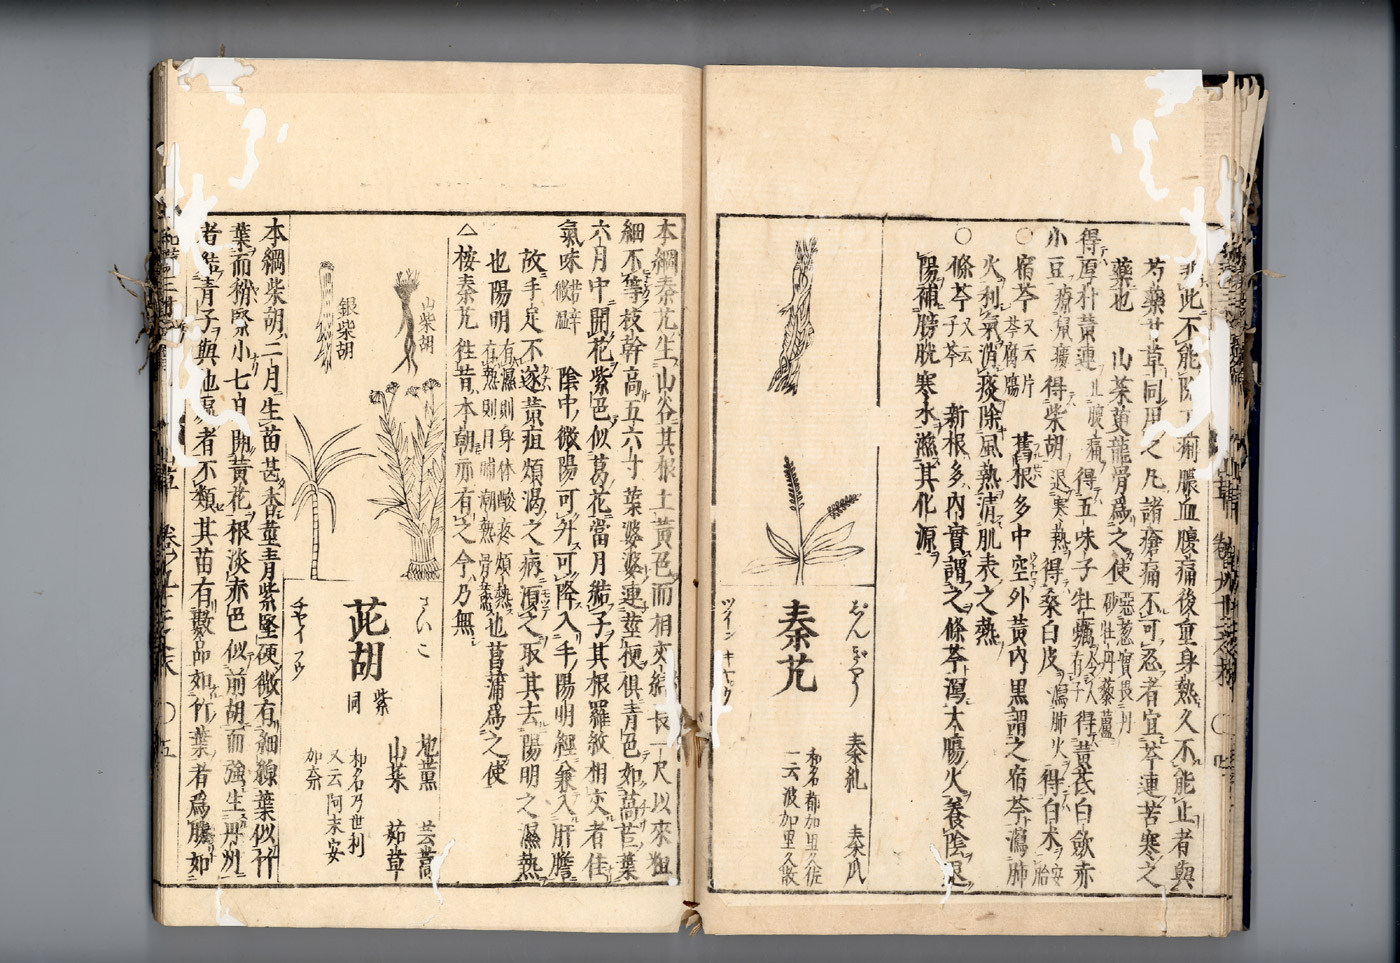 非此不能除下痢膿血腹痛後重身熱久不能止者與
芍藥甘草同用之凡諸瘡痛不可忍者宜芩連苦寒之
藥也 山茱萸龍骨爲之使 惡葱實畏丹砂牡丹藜蘆
得厚朴黃連 止腹痛 得五味子牡蠣 令人有子 得黃芪白歛赤
小豆 療鼠瘻 得柴胡 退寒熱 得桑白皮 瀉肺火 得白朮 安胎
○宿芩 又云片芩腐膓 舊根多中空外黃內黒謂之宿芩瀉肺
火利氣消痰除風熱清肌表之熱
○條芩 又云子芩 新根多內實謂之條芩瀉大膓火養陰退
陽補膀胱寒水滋其化源
じんぎやう
秦艽
ツイン キヤウ
秦糺 秦爪
和名都加里久佐
一云波加里久散
本綱秦艽生山谷其根土黃色而相交紏長一尺以來粗
細不等枝幹高五六寸葉婆婆連莖梗俱青色如萵苣葉
六月中開花紫色似葛花當月結子其根羅紋相交者佳
氣味 苦辛微溫 陰中微陽可升可降入手陽明經兼入肝膽
故手足不遂黃疸煩渴之病須之取其去陽明之濕熱
也陽明 有濕則身体酸疼煩熱 有熱則日晡潮熱骨蒸 也菖蒲爲之使
△桉秦艽徃昔本朝亦有之今乃無
山柴胡
銀柴胡
さいこ
茈胡
紫 同
チヤイ フウ
地薫 芸蒿
山菜 茹草
和名乃世利
又云阿末安
加奈
本綱柴胡二月生苗甚香莖青紫堅硬微有細線葉似竹
葉而稍緊小七月開黃花根淡赤色似前胡而強生丹州
者結青子與他處者不類其苗有數品如竹葉者爲勝如